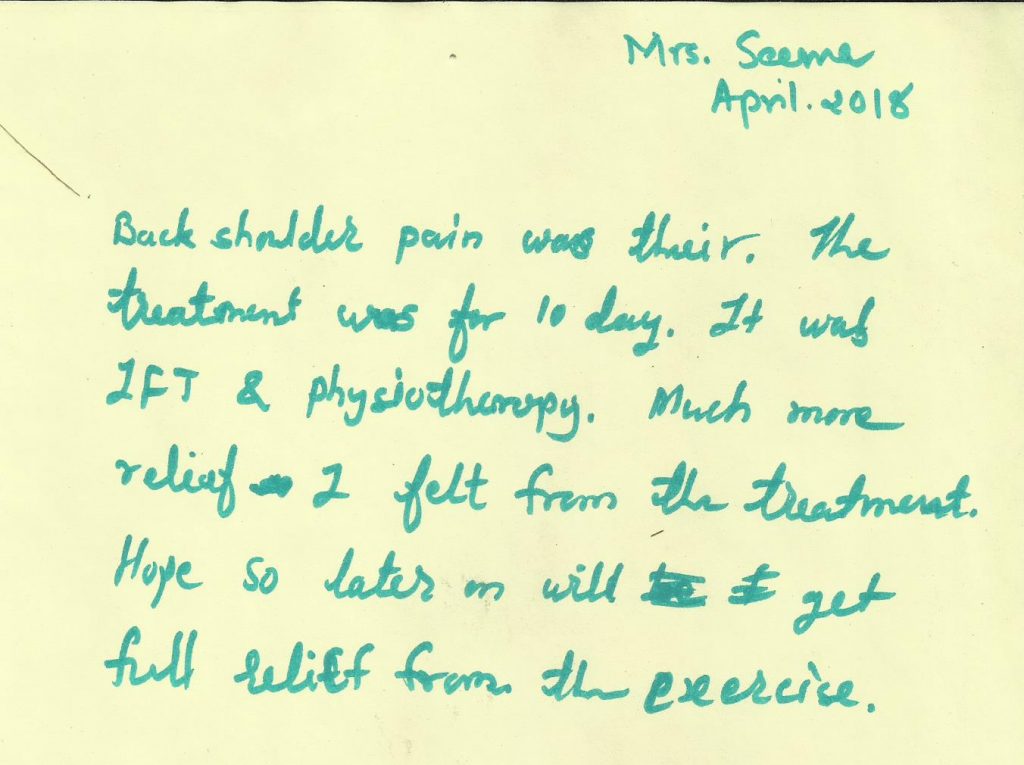 Mrs. Seema
April. 2018
Back shoulder pain was their. The
treatment was for 10 day. It was
IFT & physiotherapy. Much more
relief I felt from the treatment.
Hope so later on will get
full relief from the exercise.